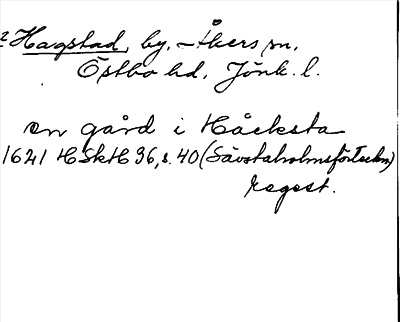 ? Hagstad, by, Åkers sn,
Östbo hd, Jönk. l.
en gård i Håcksta
1621 HSkH 36, s. 40 (Sävstaholmsförteckn)
regest.